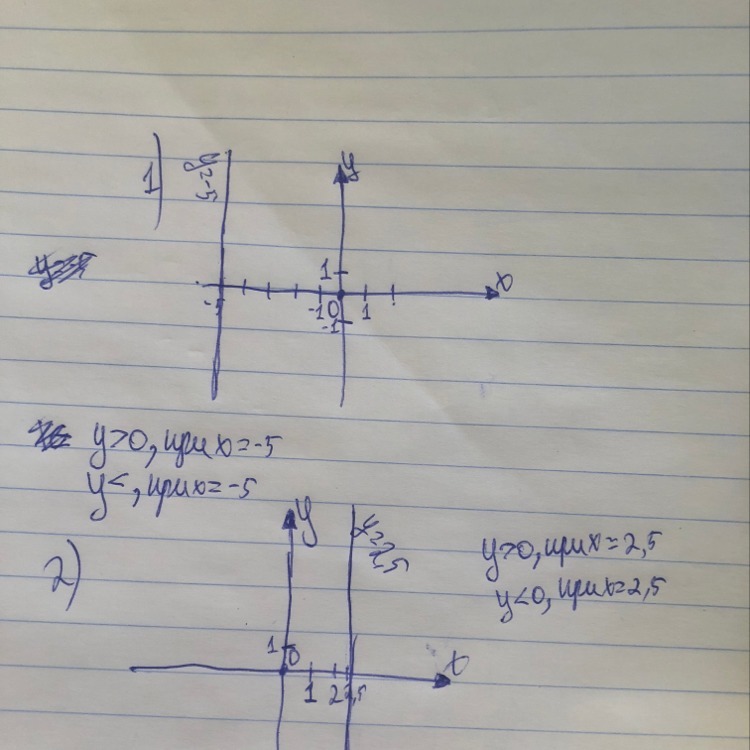 1)
y=-5
y
1
x
-5
-1 0 1
-1
y>0, при x=-5
y<, при x=-5
2)
y
y=2,5
y>0, при x=2,5
y<0, при x=2,5
1 0
x
1 2 2,5